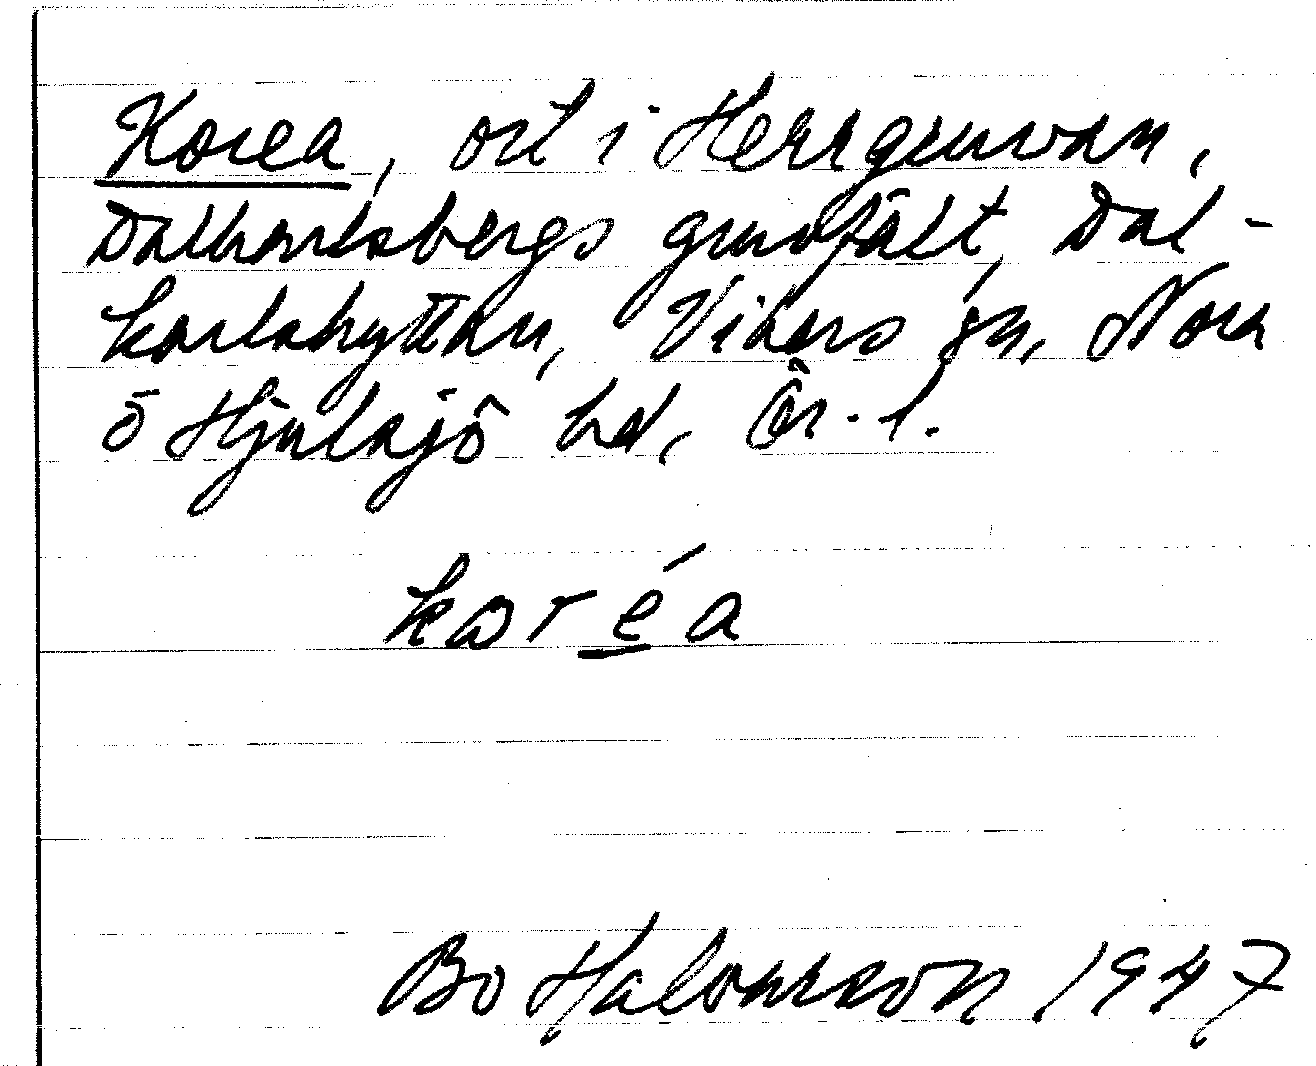 Korea, ort i Herrgruvan,
Dalkarlsbergs gruvfält, Dal-
karlshyttan, Vikers sn, Nora
o Hjulsjö hd, Ör. l.
karéa
Bo 1947